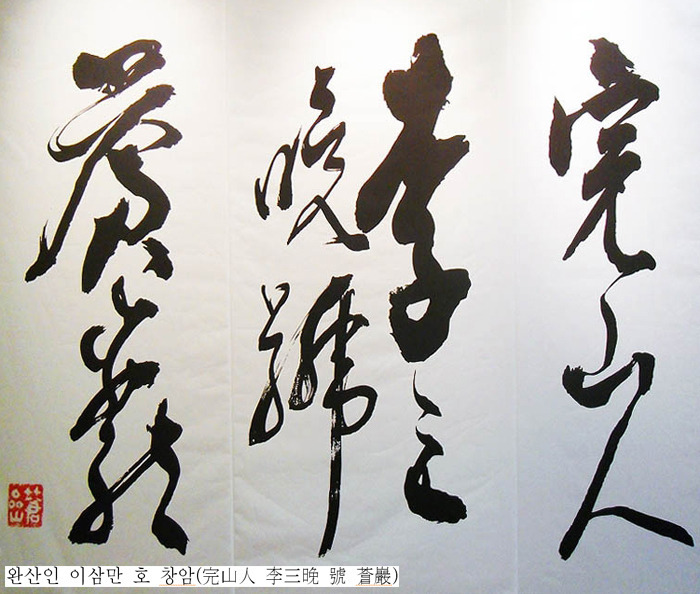 完山人
李三
晚號
蒼巖
蒼巖
완산인 이삼만 호 창암(完山人 李三晚 號 蒼巖)